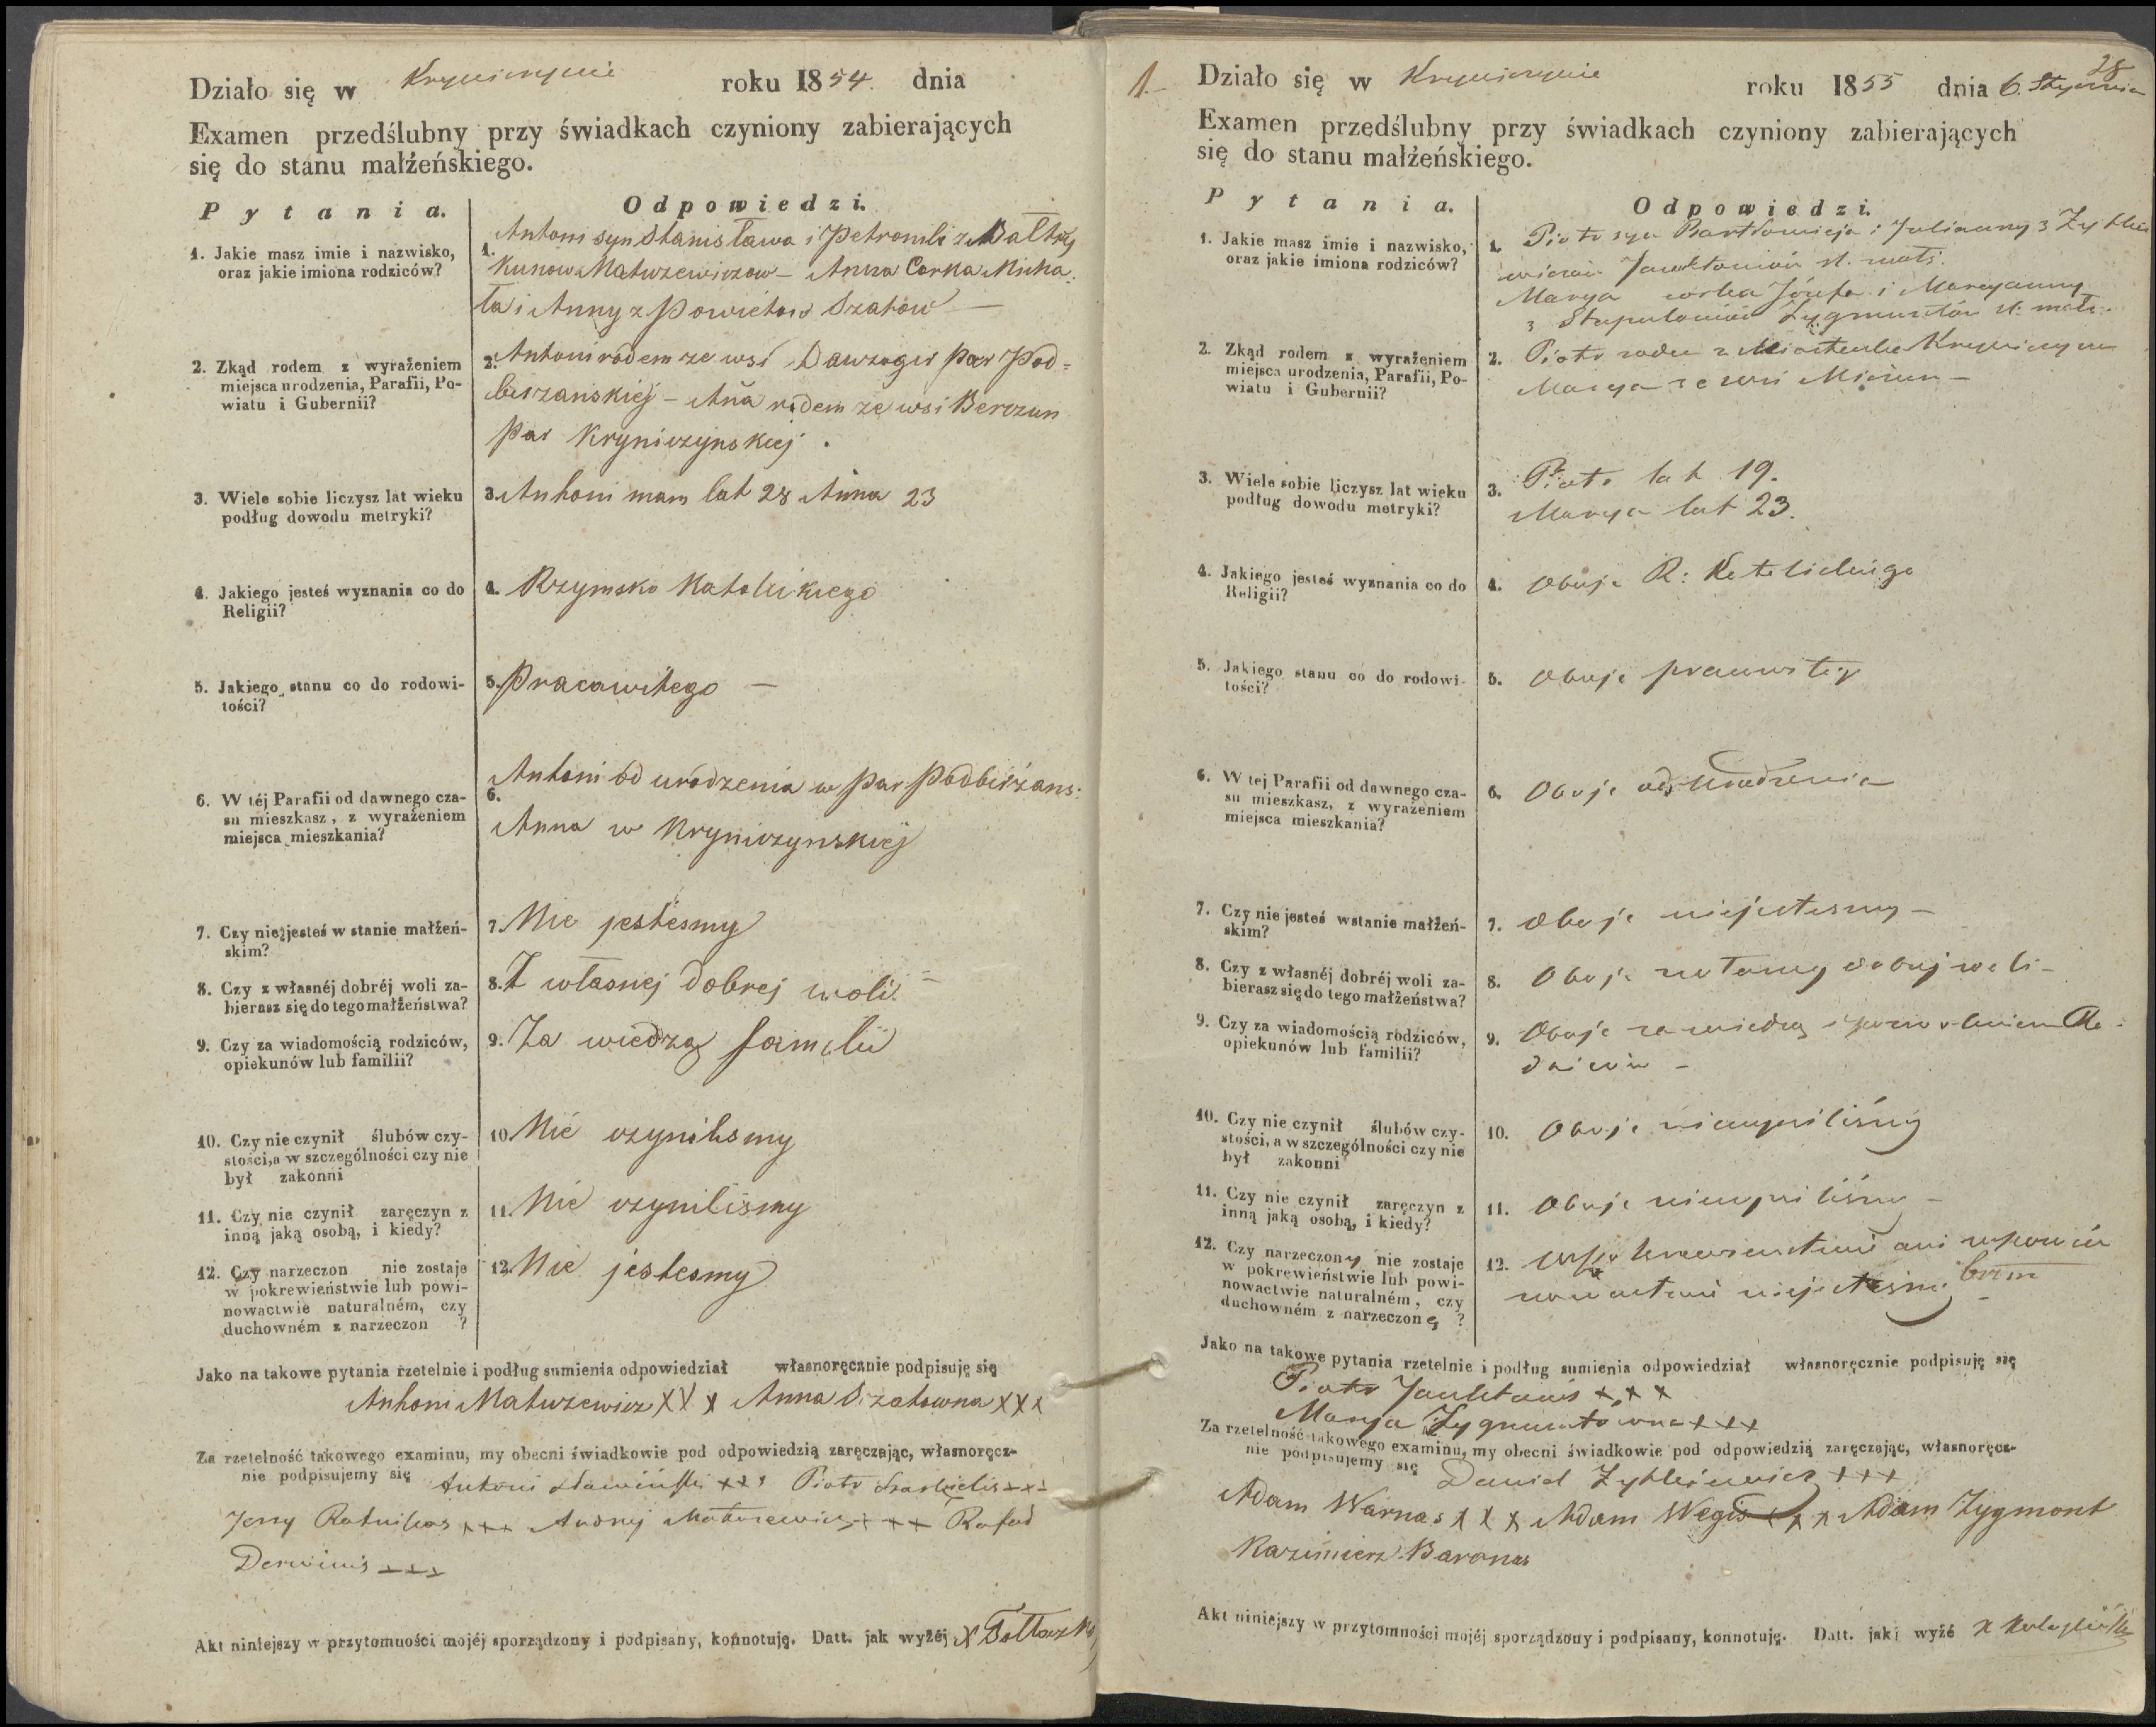 Działo się w Kryniczynie roku 1854. dnia
Examen przedślubny przy świadkach czyniony zabierających
się do stanu małżeńskiego.
Pytania.
Odpowiedzi.
1. Jakie masz imie i nazwisko,
oraz jakie imiona rodziców?
1. Antoni syn Stanisława i Petroneli z Bałtry
Kunow Matuzewiczow – Anna Corka Micha:
ła i Anny z Powiełow Szatow –
2. Zkąd rodem z wyrażeniem
miejsca urodzenia, Parafii, Po-
wiatu i Gubernii?
2. Antoni rodem ze wsi Dawzogir par Pod=
birzanskiej – Aña rodem ze wsi Berczun
par Kryniczynskiej.
3. Wiele sobie liczysz lat wieku
podług dowodu metryki?
3. Antoni mam lat 28 Anna 23
4. Jakiego jesteś wyznania co do
Religii?
4. Rzymsko Katolickiego
5. Jakiego stanu co do rodowi-
tości?
5. Pracawitego –
6. W téj Parafii od dawnego cza-
su mieszkasz, z wyrażeniem
miejsca mieszkania?
6. Antoni od urodzenia w par Podbirżans:
Anna w Kryniczynskiej
7. Czy nie jesteś w stanie małżeń-
skim?
7. Nie jestesmy
8. Czy z własnéj dobréj woli za-
bierasz się do tego małżeństwa?
8. Z własnej dobrej woli
9. Czy za wiadomością rodziców,
opiekunów lub familii?
9. Za wiedzą familii
10. Czy nie czynił ślubów czy-
stości, a w szczególności czy nie
był zakonni
10. Nie czynilismy
11. Czy nie czynił zaręczyn z
inną jaką osobą, i kiedy?
11. Nie czynilismy
12. Czy narzeczon nie zostaje
w pokrewieństwie lub powi-
nowactwie naturalném, czy
duchowném z narzeczon ?
12. Nie jestesmy
Jako na takowe pytania rzetelnie i podług sumienia odpowiedział własnoręcznie podpisuję się
Antoni Matuzewicz X X X Anna Szatowna X X X
Za rzetelność takowego examinu, my obecni świadkowie pod odpowiedzią zaręczając, własnoręcz-
nie podpisujemy się Antoni Sławiński +++ Piotr +++
Jerzy Ratnikas +++ Andrzej Matuzewicz +++ Rafał
Derwinis +++
Akt niniejszy w przytomności mojéj sporządzony i podpisany, konnotuję. Datt. jak wyżéj X
28
1.– Działo się w Kryniczynie roku 1855 dnia 6. Stycznia
Examen przedślubny przy świadkach czyniony zabierających
się do stanu małżeńskiego.
Pytania.
Odpowiedzi.
1. Jakie masz imie i nazwisko,
oraz jakie imiona rodziców?
1. Piotr syn Bartłomieja i Julianny z Zytkie
wiczów Janktoniów st. małż.
Marya corka Józefa i Maryanny
z Stapuloniów Zygmuntów st. małż.
2. Zkąd rodem z wyrażeniem
miejsca urodzenia, Parafii, Po-
wiatu i Gubernii?
2. Piotr rodem z Miasteczka Kryniczyna
Marya ze wsi Miciun –
3. Wiele sobie liczysz lat wieku
podług dowodu metryki?
3. Piotr lat 19.
Marya lat 23.
4. Jakiego jesteś wyznania co do
Religii?
4. Oboje R: Katolickiego
5. Jakiego stanu co do rodowi-
tości?
5. Oboje
6. W tej Parafii od dawnego cza-
su mieszkasz, z wyrażeniem
miejsca mieszkania?
6. Oboje od urodzenia
7. Czy nie jesteś wstanie małżeń-
skim?
7. Oboje niejestesmy –
8. Czy z własnéj dobréj woli za-
bierasz się do tego małżeństwa?
8. Oboje własnej dobrej woli –
9. Czy za wiadomością rodziców,
opiekunów lub familii?
9. Oboje za wiedzą i pozwoleniem Ro-
dziców –
10. Czy nie czynił ślubów czy-
stości, a w szczególności czy nie
był zakonni
10. Oboje nieczyniliśmy
11. Czy nie czynił zaręczyn z
inną jaką osobą, i kiedy?
11. Oboje nieczyniliśmy –
12. Czy narzeczony nie zostaje
w pokrewieństwie lub powi-
nowactwie naturalném, czy
duchowném z narzeczoną ?
12. W pokrewienstwie ani w powi
nowactwie niejestesmy
Jako na takowe pytania rzetelnie i podług sumienia odpowiedział własnoręcznie podpisuję się
Piotr Janktanis + + +
Marya Zygmuntówna +++
Za rzetelność takowego examinu, my obecni świadkowie pod odpowiedzią zaręczając, własnoręcz-
nie podpisujemy się Daniel Zytkiewicz +++
Adam Warnas X X X Adam Wegis X X X Adam Zygmont
Kazimierz Baronas
Akt niniejszy w przytomności mojéj sporządzony i podpisany, konnotuję. Datt. jak wyżé X